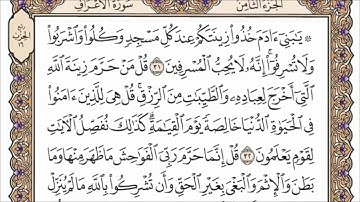 الجزء الثامن سورة الأعراف
ربع الحزب ١٦
۞ يَٰبَنِىٓ ءَادَمَ خُذُوا۟ زِينَتَكُمْ عِندَ كُلِّ مَسْجِدٍ وَكُلُوا۟ وَٱشْرَبُوا۟
وَلَا تُسْرِفُوٓا۟ ۚ إِنَّهُۥ لَا يُحِبُّ ٱلْمُسْرِفِينَ ٣١ قُلْ مَنْ حَرَّمَ زِينَةَ ٱللَّهِ
ٱلَّتِىٓ أَخْرَجَ لِعِبَادِهِۦ وَٱلطَّيِّبَٰتِ مِنَ ٱلرِّزْقِ ۚ قُلْ هِىَ لِلَّذِينَ ءَامَنُوا۟
فِى ٱلْحَيَوٰةِ ٱلدُّنْيَا خَالِصَةً يَوْمَ ٱلْقِيَٰمَةِ ۗ كَذَٰلِكَ نُفَصِّلُ ٱلْءَايَٰتِ
لِقَوْمٍ يَعْلَمُونَ ٣٢ قُلْ إِنَّمَا حَرَّمَ رَبِّىَ ٱلْفَوَٰحِشَ مَا ظَهَرَ مِنْهَا وَمَا
بَطَنَ وَٱلْإِثْمَ وَٱلْبَغْىَ بِغَيْرِ ٱلْحَقِّ وَأَن تُشْرِكُوا۟ بِٱللَّهِ مَا لَمْ يُنَزِّلْ